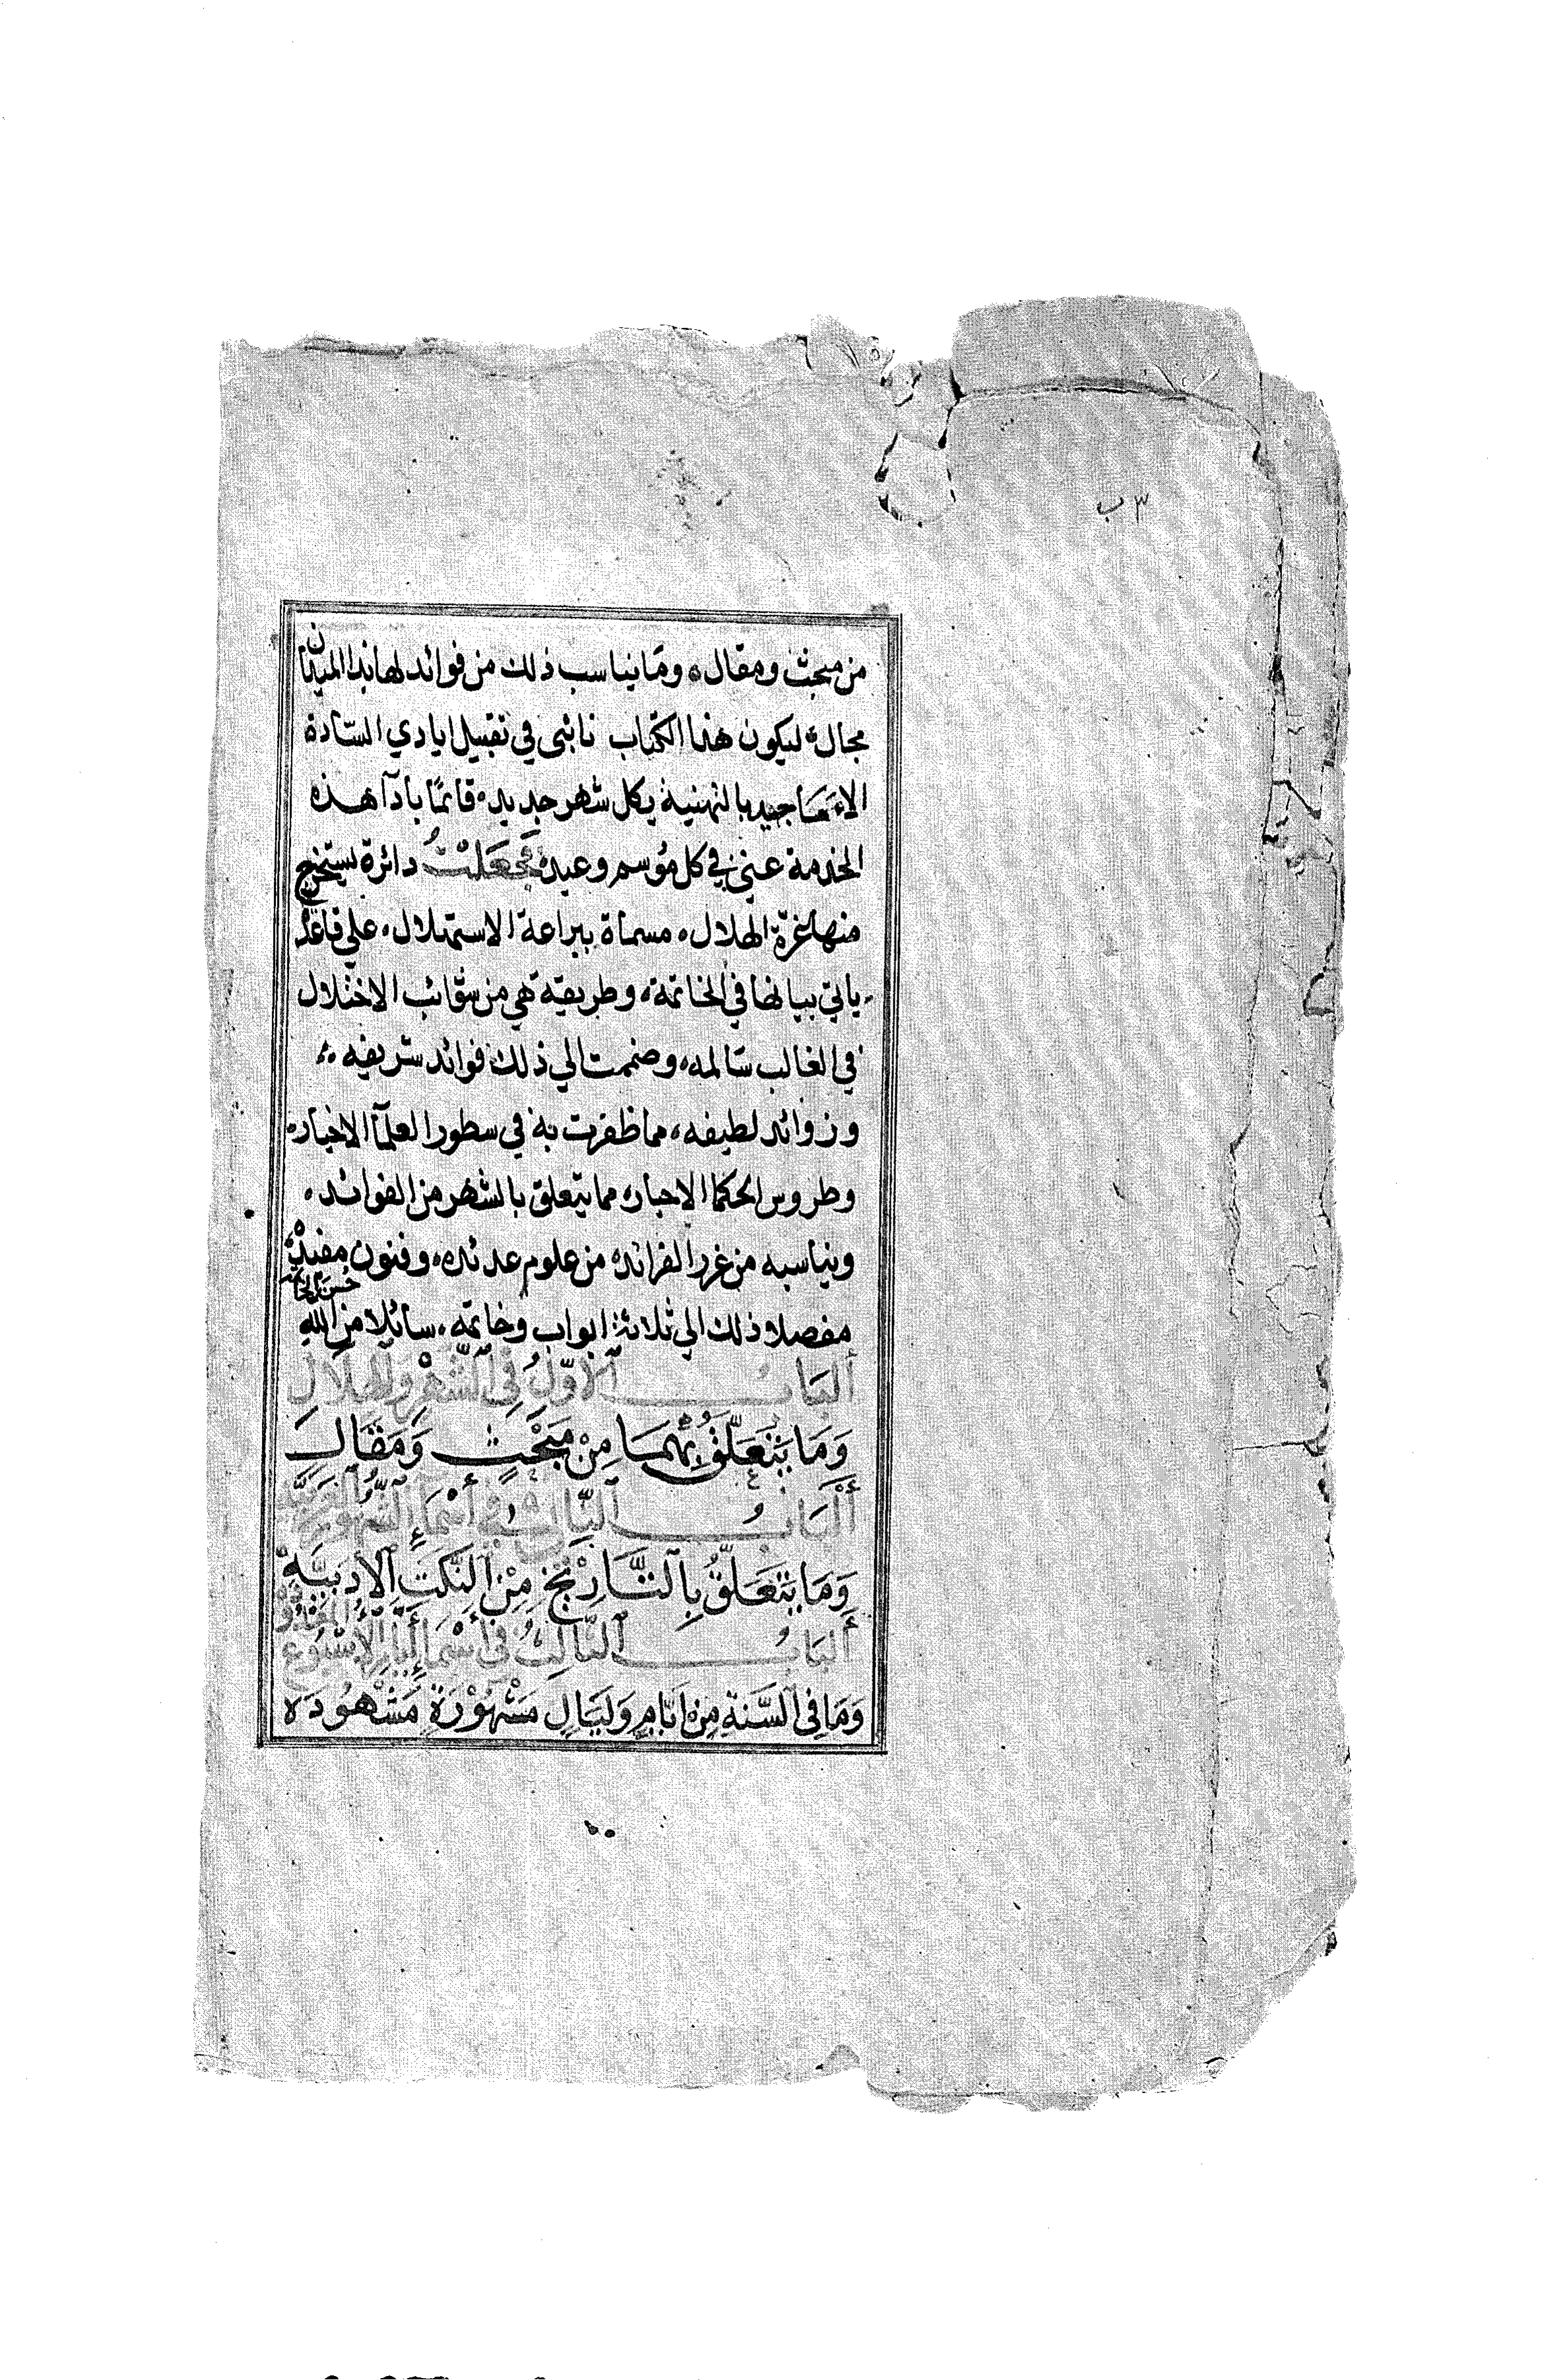 ٣ ب
من مبحث ومقال، وما يناسب ذلك من فوائد لها بهذا الميدان
مجال، ليكون هذا الكتاب نائبى في تقبيل ايادي السادة
الاماجيد بالتهنية بكل شهر جديد، قائمًا بادآ هذه
الخدمة عني في كل موسم وعيد، فَجَعَلْتُ دائرة يستخرج
منها غرة الهلال، مسماة ببراعة الاستهلال، علي قاعدة
ياتي بيانها في الخاتمة، وطريقه هي من شوائب الاختلال
في الغالب سالمه، وضممت الي ذلك فوائد شريفه
وزوائد لطيفه، مما ظفرت به في سطور العلمآ الاخيار،
وطروس الحكما الاحبار، مما يتعلق بالشهر من الفوائد،
ويناسبه من غرر الفرائد، من علوم عديده، وفنون مفيدة
مفصلا ذلك الي ثلاثة ابواب وخاتمه، سائلا من الله حسن الخاتمه
ألبَابُ الآوّلُ فِي الشَّهْرِ وَالهِلَالِ
وَمَا يَتَعَلَّقُ بِهِمَا مِنْ مَبْحَثٍ وَمَقَالِ
ألْبَابُ الثَّانِي فِي أسْمَاءِ الشُّهُورِ العَرَبِيَّة
وَمَا يَتَعَلَّقُ بِالتَّارِيْخِ مِنَ النُّكَتِ الأَدَبِيَّةِ
ألبَابُ الثَّالِثُ فِي أسْمَاءِ أيَّامِ الأُسْبُوعِ
وَمَا فِي السَّنَةِ مِنْ اَيَّامٍ وَلَيَالٍ مَشْهُوْرَةٍ مَشْهُودَه